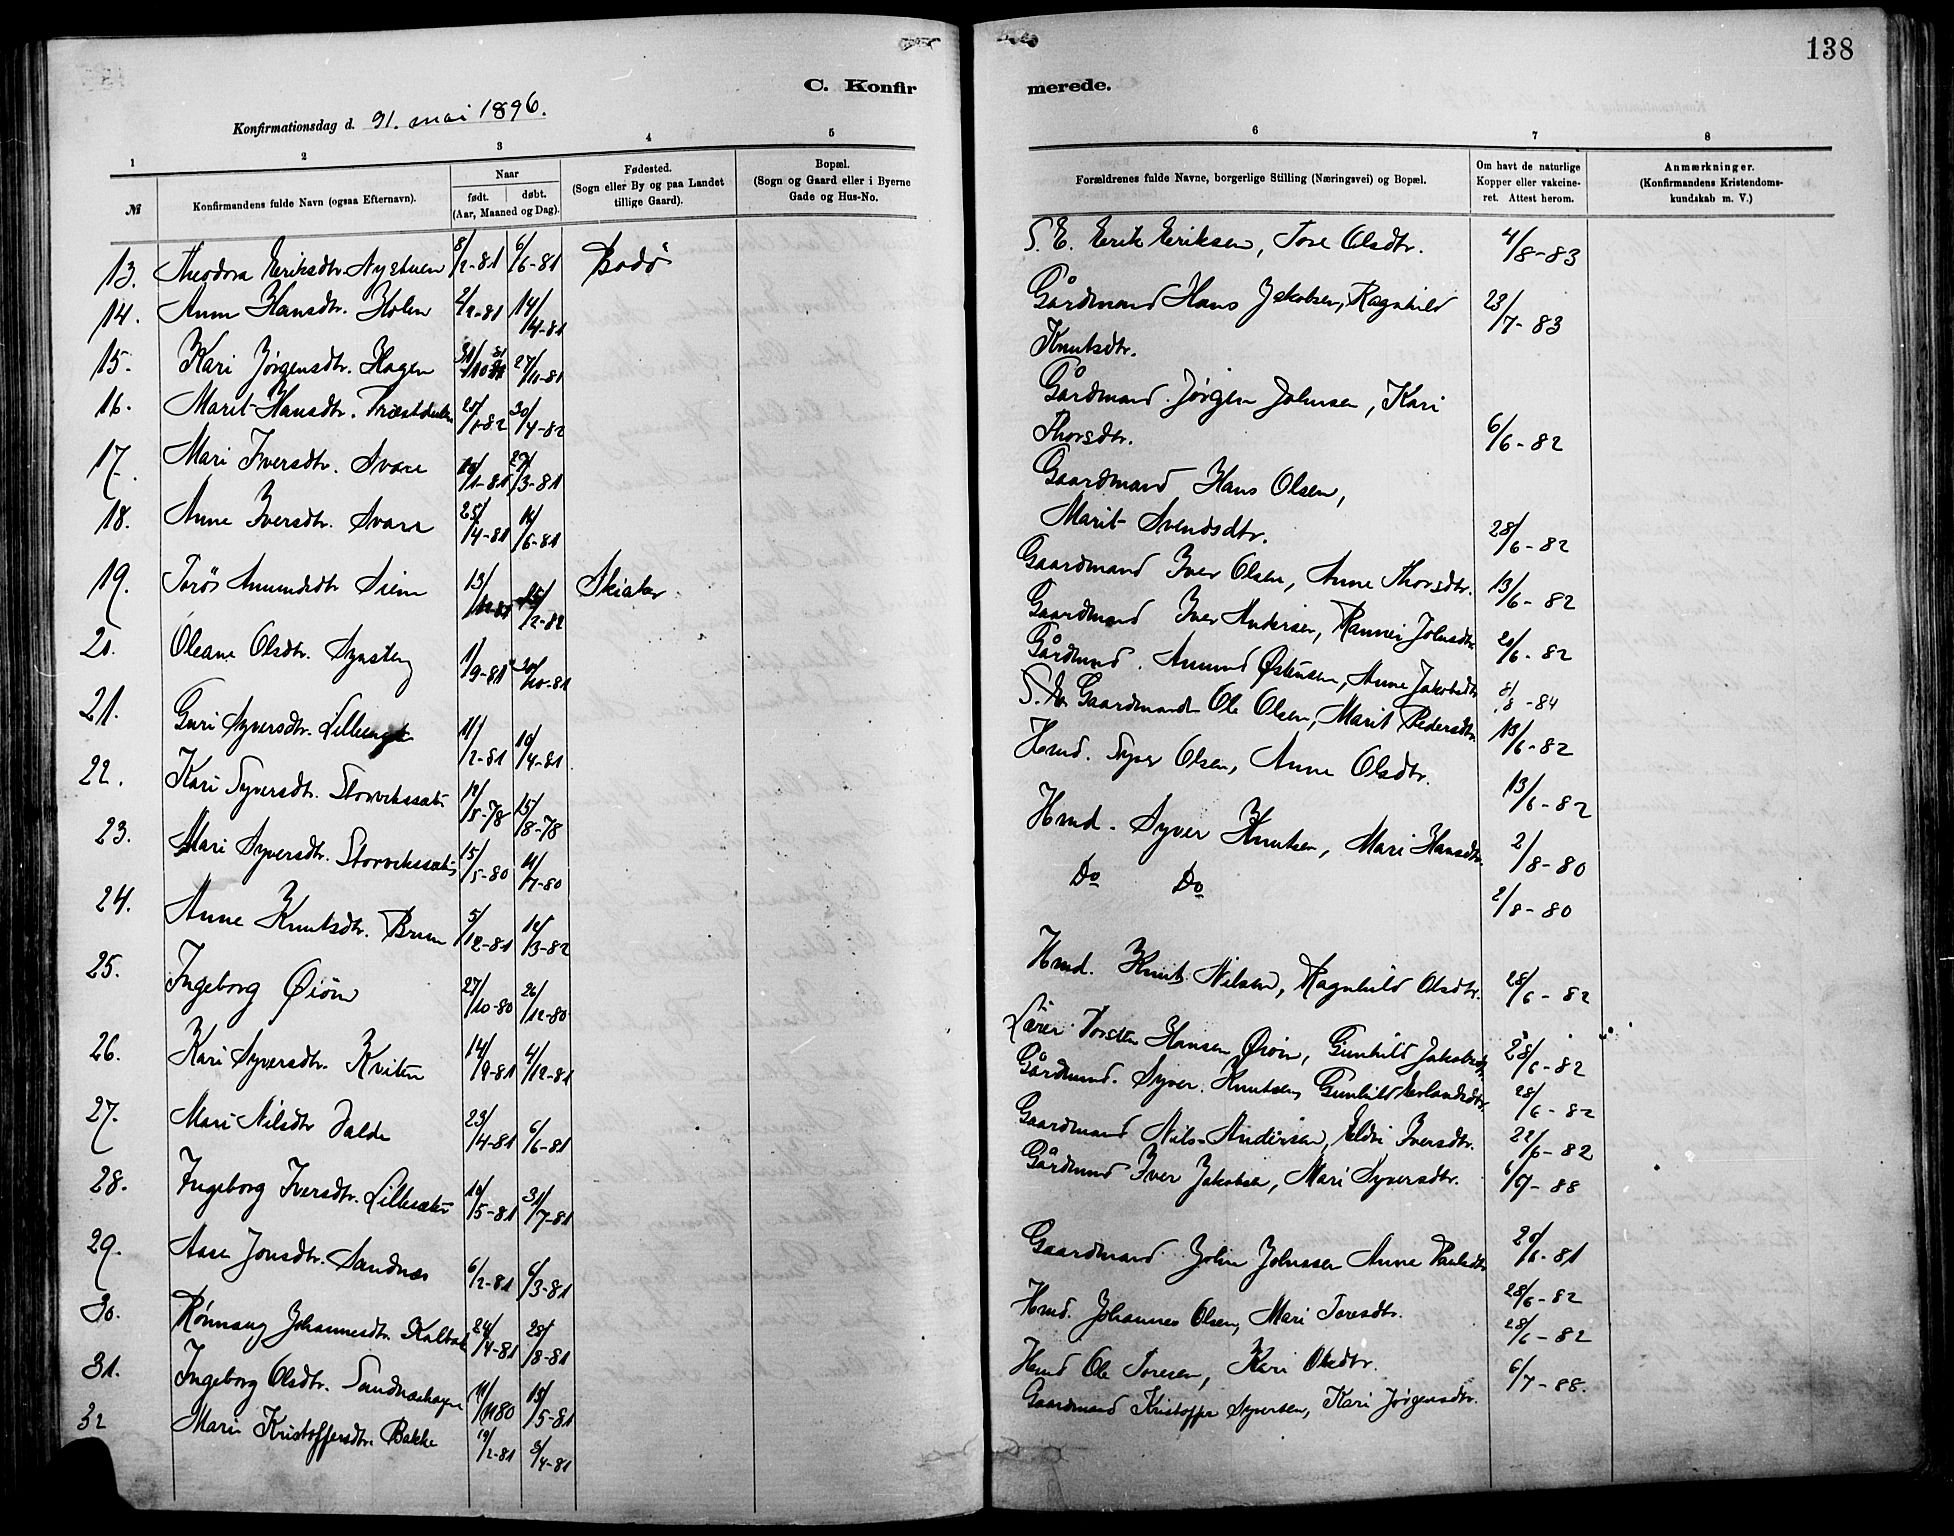 138
C. Konfirmerede.
Konfirmationsdag d. 31. mai 1896.
1 2 3 4 5 6 7 8
№
Konfirmandens fulde Navn (ogsaa Efternavn).
Naar
født. døbt.
(Aar, Maaned og Dag).
Fødested.
(Sogn eller By og paa Landet
tillige Gaard).
Bopæl.
(Sogn og Gaard eller i Byerne
Gade og Hus-No.
Forældrenes fulde Navne, borgerlige Stilling (Næringsvei) og Bopæl.
Om havt de naturlige
Kopper eller vakcine-
ret. Attest herom.
Anmærkninger.
(Konfirmandens Kristendoms-
kundskab m. V.)
13. Theodora Eriksdtr. Nystuen 8/2-81 6/6-81 Bodø
14. Anne Hansdtr. Holen 2/2-81 14/4-81
15. Kari Jørgensdtr. Hagen 27/11-81
16. Marit Hansdtr. 20/1-82 30/4-82
17. Mari Iversdtr. Svare 10/1-81 27/3-81
18. Anne Iversdtr. Svare 25/4-81 /6-81
19. Torøs Amundsdtr Siem 13/ /2-82 Skiaker
20. Oleane Olsdtr. Synsteng 1/9-81 30/10-81
21. Guri Syversdtr. 11/2-81 10/4-81
22. Kari Syversdtr. Storviksæt 12/5-78 15/8-78
23. Mari Syversdtr. Storviksæt 15/5-80 11/7-80
24. Anne Knutsdtr. Bruen 5/12-81 12/3-82
25. Ingeborg Øiøm 27/10-80 26/12-80
26. Kari Syversdtr. Kviten 14/9-81 4/12-81
27. Mari Nilsdtr Dalde 23/4-81 6/6-81
28. Ingeborg Iversdtr. Lillesæter /5-81 31/7-81
29. Aase Jonsdtr. Sandnes 6/2-81 6/3-81
30. Rønnaug Johannesdtr. 24/4-81 28/8-81
31. Ingeborg Olsdtr. Sandneshagen 15/5-81
32 Mari Kristoffersdtr. Bakke 19/2-81 3/4-81
S. E. Erik Eriksen, Tore Olsdtr. 4/8-83
Gårdmand Hans Jakobsen, Ragnhild 23/7-83
Knutsdtr.
Gårdmand. Jørgen Johnsen, Kari
Thorsdtr. 6/6-82
Gaardmand Hans Olsen,
Marit Svendsdtr. 28/6-82
Gaardmand Iver Olsen, Anne Thorsdtr. 13/6-82
Gaardmand Iver Andersen, Rannei Johnsdtr. 20/6-82
Gårdmand. Amund Østensen, Anne Jakobsdtr. 8/8-84
Gaardmand Ole Olsen, Marit Pedersdtr. 13/6-82
Hmd. Syver Olsen, Anne Olsdtr. 13/6-82
Hmd. Syver Knutsen, Mari Hansdtr. 2/8-80
Do Do 2/8-80
Hmd. Knut Nilsen, Ragnhild Olsdtr. 28/6-82
Lærer Torsten Hansen Øiøm, Gunhild Jakobsdtr. 28/6-82
Gårdmand. Syver Knutsen, Gunhild Erlandsdtr. 28/6-82
Gaardmand Nils Andersen, Eldri Iversdtr. 22/6-82
Gårdmand Iver Jakobsen, Mari Syversdtr. 6/7-88
Gaardmand John Johnssen Anne Paulsdtr. 20/6-81
Hmd. Johannes Olsen, Mari Toresdtr. 28/6-82
28/6-82
Hmd Ole Toresen, Kari Olsdtr. 6/7-88.
Gaardmand Kristoffer Syversen, Kari Jørgensdtr.